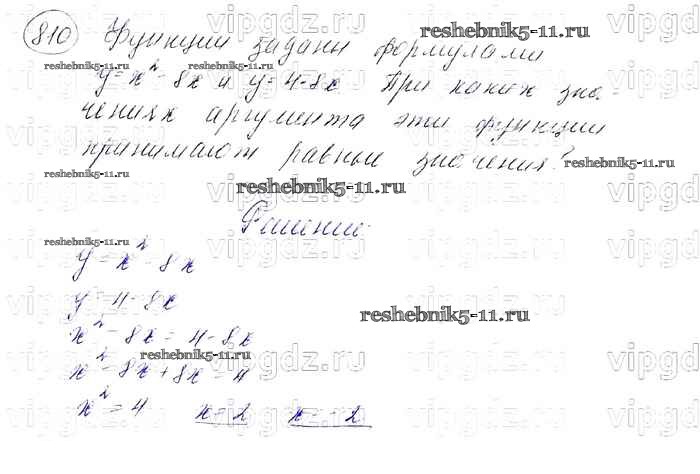 810 Функции заданы формулами
y = x² - 8x и y = 4 - 8x При каких зна-
чениях аргумента эти функции
принимают равные значения?
Решение:
y = x² - 8x
y = 4 - 8x
x² - 8x = 4 - 8x
x² - 8x + 8x = 4
x² = 4 x = 2 x = -2
reshebnik5-11.ru
reshebnik5-11.ru
reshebnik5-11.ru
reshebnik5-11.ru
reshebnik5-11.ru
reshebnik5-11.ru
reshebnik5-11.ru
reshebnik5-11.ru
reshebnik5-11.ru
vipgdz.ru